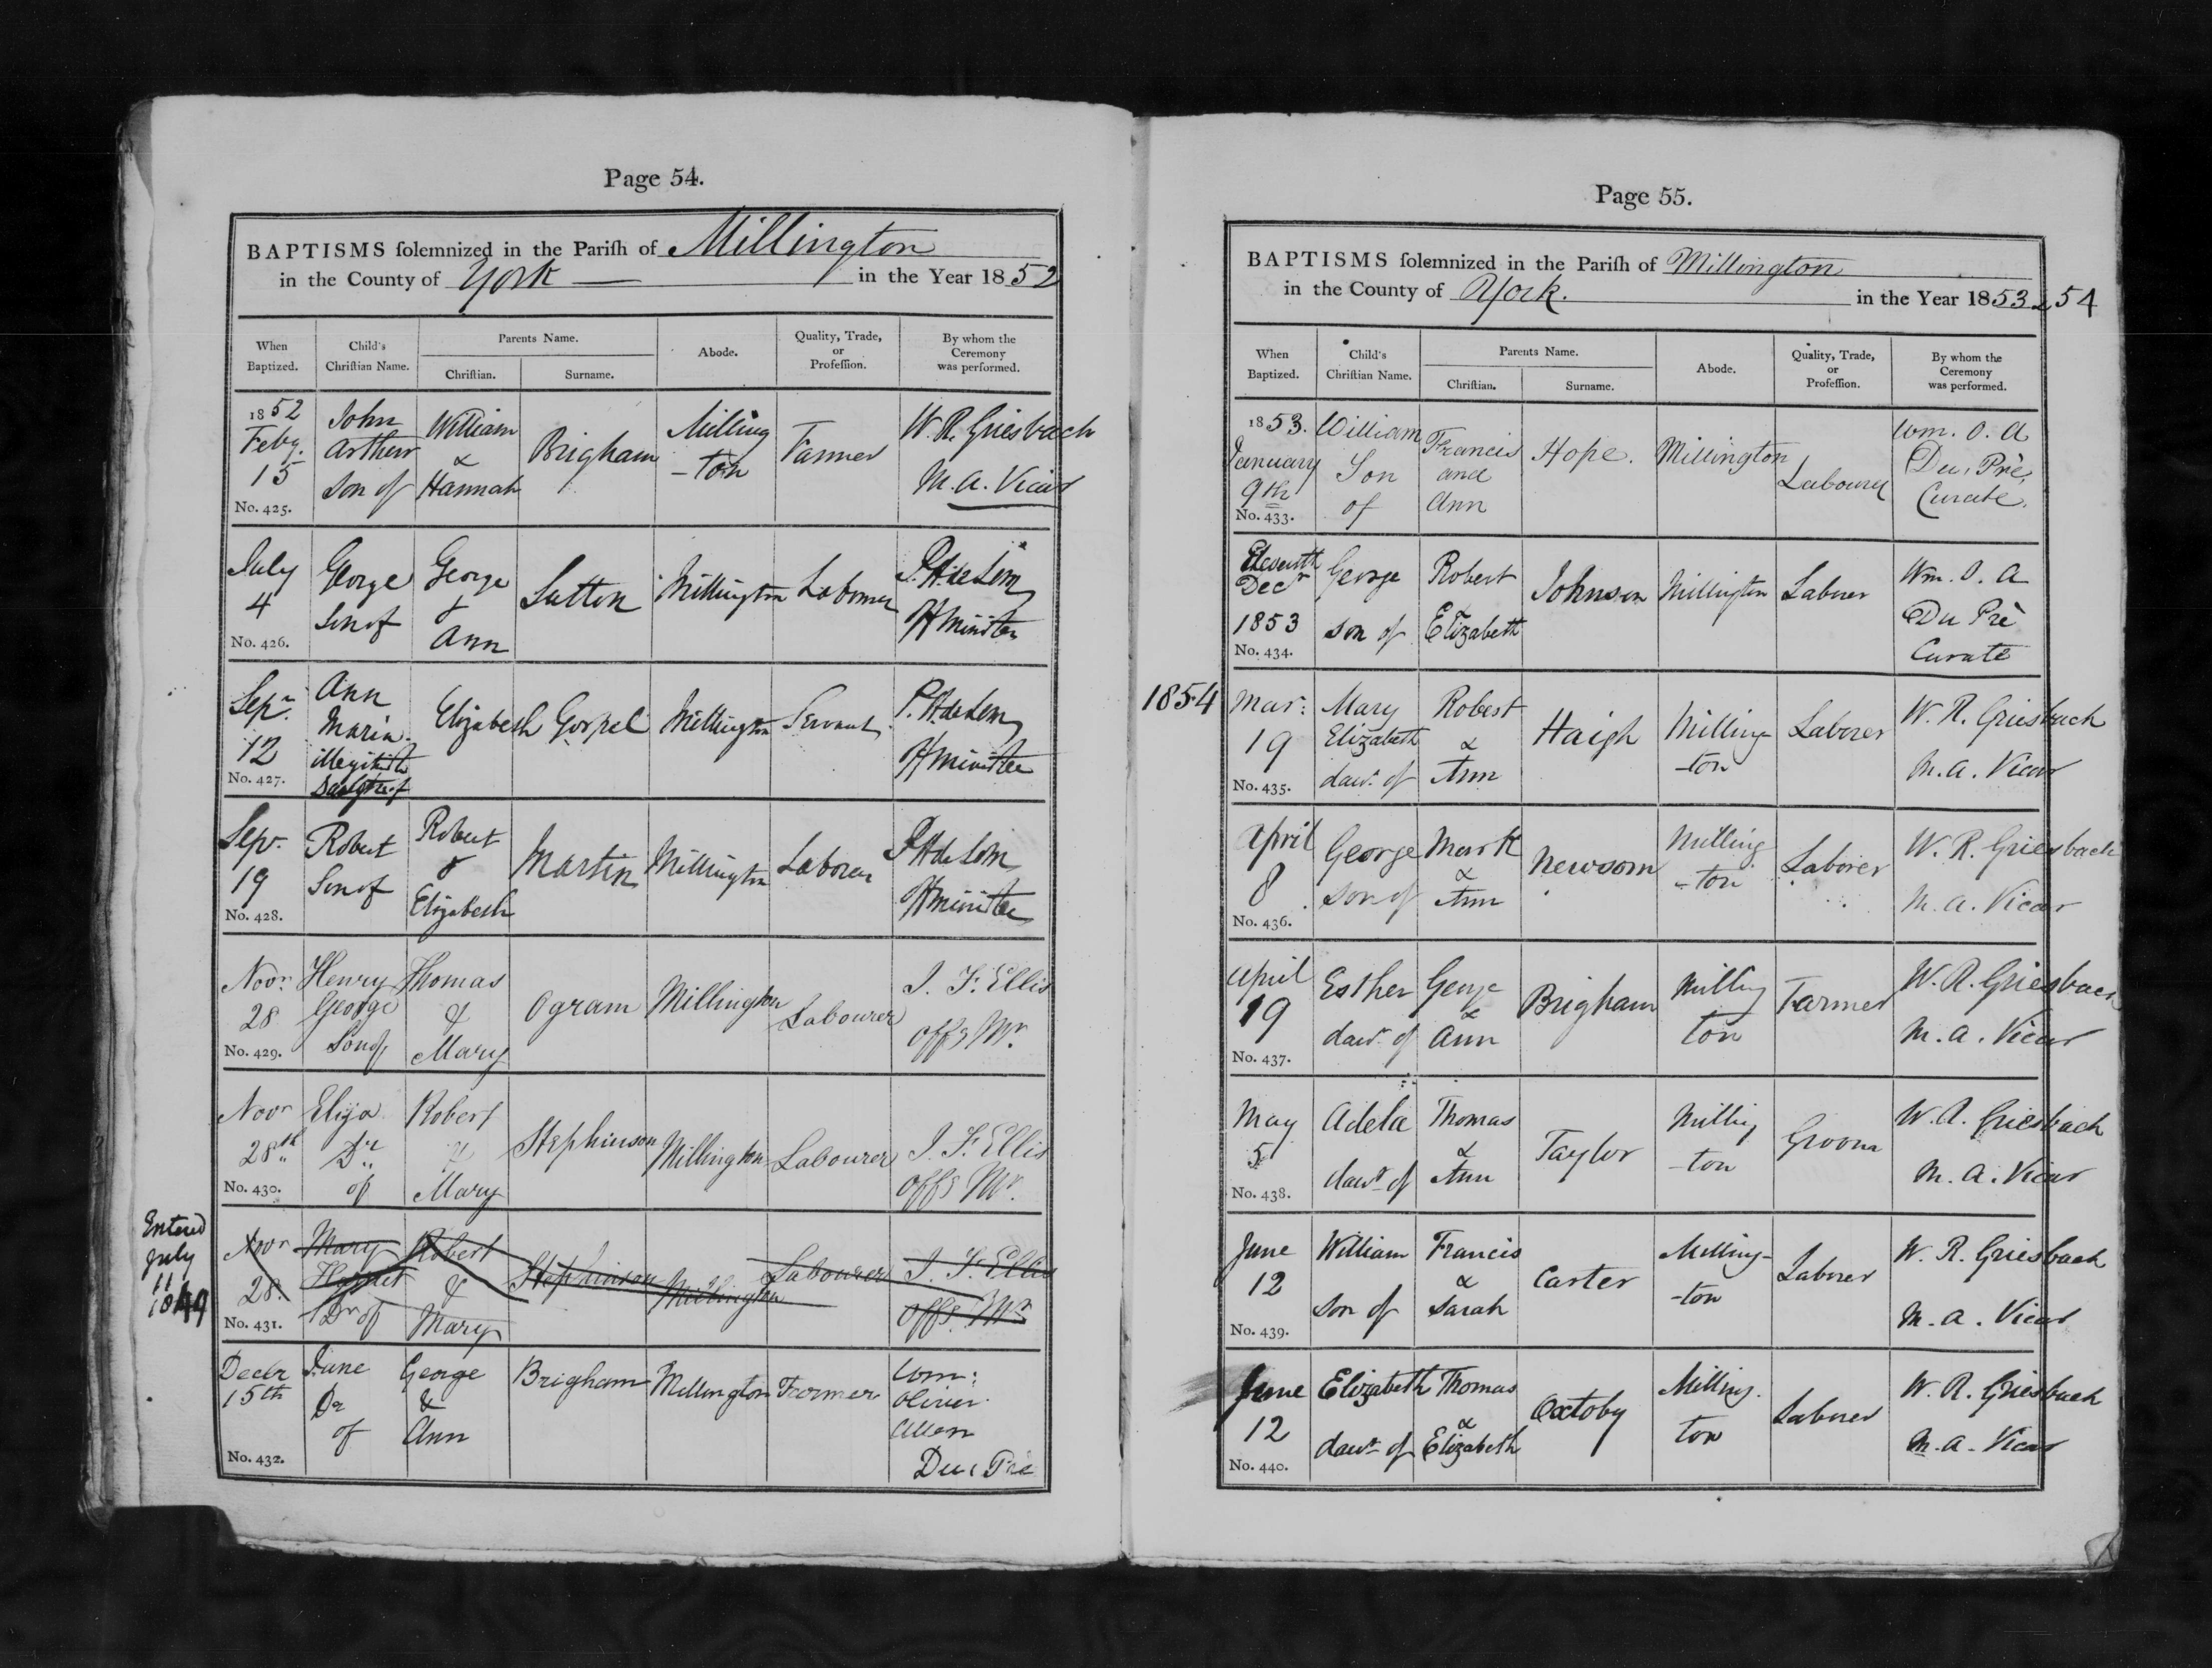 Page 54.
BAPTISMS solemnized in the Parish of Millington
in the County of York — in the Year 1852
When Baptized.
Child's Christian Name.
Parents Name.
Christian.
Surname.
Abode.
Quality, Trade, or Profession.
By whom the Ceremony was performed.
1852 Feby. 15 No. 425.
John Arthur Son of
William & Hannah
Brigham
Milling -ton
Farmer
W. R. Griesbach M.A. Vicar
July 4 No. 426.
George Son of
George & Ann
Sutton
Millington
Labourer
Minister
Sepr. 12 No. 427.
Ann Maria illegitimate
Elizabeth
Gospel
Millington
Servant
Minister
Sepr. 19 No. 428.
Robert Son of
Robert & Elizabeth
Martin
Millington
Laborer
Minister
Novr. 28 No. 429.
Henry George Son of
Thomas & Mary
Ogram
Millington
Labourer
J. F. Ellis Offg Mr.
Novr 28th No. 430.
Eliza Dr. of
Robert & Mary
Stephinson
Millington
Labourer
J. F. Ellis Offg Mr.
Entered July 11 1849
Novr 28. No. 431.
Mary Harriet Dr of
Robert & Mary
Stephinson
Millington
Labourer
J. F. Ellis Offg Mr
Decbr 15th No. 432.
Jane Dr of
George & Ann
Brigham
Millington
Farmer
Wm: Olivier Allen Du Pré
Page 55.
BAPTISMS solemnized in the Parish of Millington
in the County of York. in the Year 1853 & 54
When Baptized.
Child's Christian Name.
Parents Name.
Christian.
Surname.
Abode.
Quality, Trade, or Profession.
By whom the Ceremony was performed.
1853. January 9th No. 433.
William Son of
Francis and Ann
Hope.
Millington
Labourer
Wm. O. A Du Prè, Curate.
Eleventh Decr 1853 No. 434.
George son of
Robert Elizabeth
Johnson
Millington
Laborer
Wm. O. A Du Prè Curate
1854
Mar: 19 No. 435.
Mary Elizabeth dawr. of
Robert & Ann
Haigh
Milling -ton
Laborer
W. R. Griesbach M.A. Vicar
April 8 No. 436.
George son of
Mark & Ann
Newsom
Milling -ton
Laborer
W. R. Griesbach M.A. Vicar
April 19 No. 437.
Esther dawr. of
George & Ann
Brigham
Milling ton
Farmer
W. R. Griesbach M.A. Vicar
May 5 No. 438.
Adela dawr. of
Thomas & Ann
Taylor
Milling -ton
Groom
W. R. Griesbach M.A. Vicar
June 12 No. 439.
William son of
Francis & Sarah
Carter
Milling -ton
Laborer
W. R. Griesbach M.A. Vicar
June 12 No. 440.
Elizabeth dawr. of
Thomas & Elizabeth
Oxtoby
Milling. ton
Laborer
W. R. Griesbach M.A. Vicar